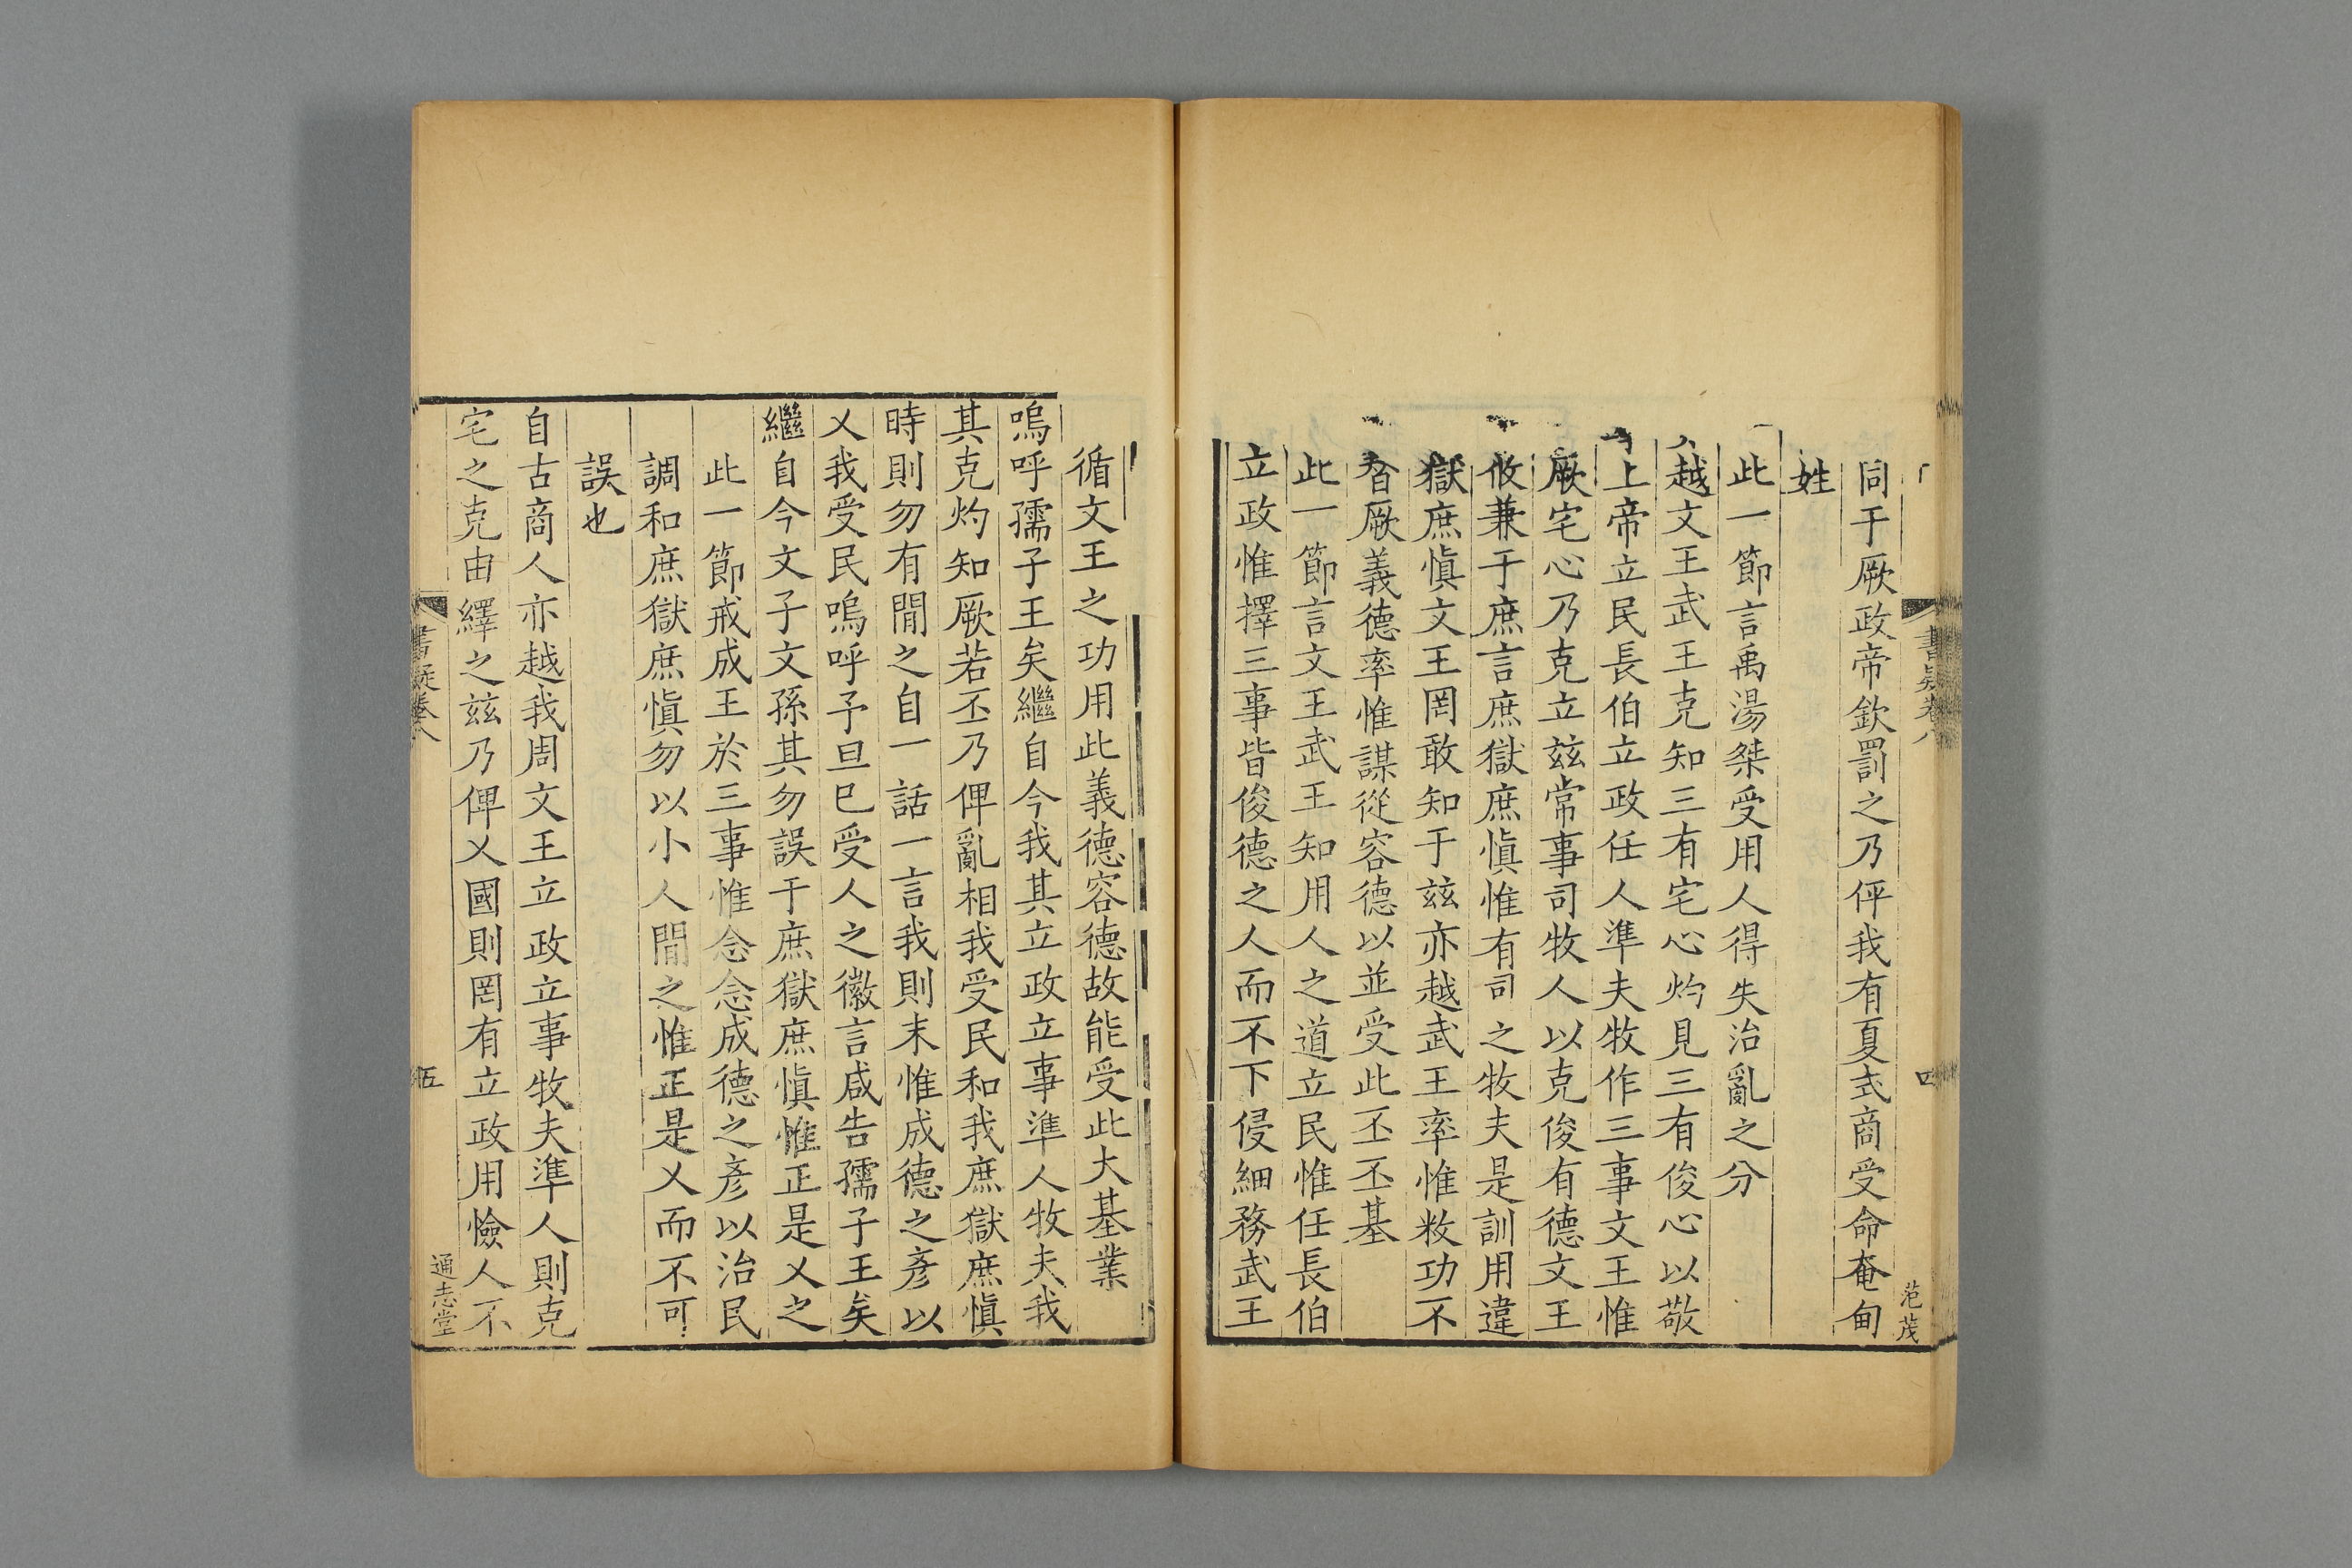 書疑卷八
四
范茂
同于厥政帝欽罰之乃伻我有夏式商受命奄甸
姓
此一節言禹湯桀受用人得失治亂之分
越文王武王克知三有宅心灼見三有俊心以敬
上帝立民長伯立政任人準夫牧作三事文王惟
厥宅心乃克立兹常事司牧人以克俊有德文王
攸兼于庶言庶獄庶慎惟有司之牧夫是訓用違
獄庶慎文王罔敢知于兹亦越武王率惟敉功不
厥義德率惟謀從容德以並受此丕丕基
此一節言文王武王知用人之道立民惟任長伯
立政惟擇三事皆俊德之人而不下侵細務武王
循文王之功用此義德容德故能受此大基業
嗚呼孺子王矣繼自今我其立政立事準人牧夫我
其克灼知厥若丕乃俾亂相我受民和我庶獄庶慎
時則勿有閒之自一話一言我則末惟成德之彦以
乂我受民嗚呼予旦已受人之徽言咸告孺子王矣
繼自今文子文孫其勿誤于庶獄庶慎惟正是乂之
此一節戒成王於三事惟念念成德之彦以治民
調和庶獄庶慎勿以小人閒之惟正是乂而不可
誤也
自古商人亦越我周文王立政立事牧夫準人則克
宅之克由繹之兹乃俾乂國則罔有立政用憸人不
書疑卷八
五
通志堂